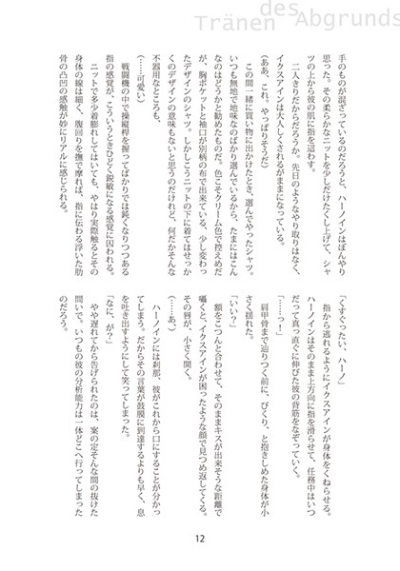 Tränen des Abgrunds
手のものが混ざっているのだろうと、ハーノインはぼんやり
思った。その柔らかなニットを少しだけたくし上げて、シャ
ツの上から彼の肌に指を這わす。
二人きりだからだろうか。先日のようなやり取りはなく、
イクスアインは大人しくされるがままになっている。
(ああ、これ。やっぱりそうだ)
この間一緒に買い物に出かけたとき、選んでやったシャツ。
いつも無地で地味なのばかり選んでいるから、たまにはこん
なのはどうかと勧めたものだ。色こそクリーム色で控えめだ
が、胸ポケットと袖口が別柄の布で出来ている、少し変わっ
たデザインのシャツ。しかしこうニットの下に着てはせっか
くのデザインの意味もないと思うのだけれど、何だかそんな
不器用なところも、
(……可愛い)
戦闘機の中で操縦桿を握ってばかりでは鈍くなりつつある
指の感覚が、こういうときひどく鋭敏になる感覚に囚われる。
ニットで多少着膨れしてはいても、やはり実際触るとその
身体の線は細く、腹回りを撫で摩れば、指に伝わる浮いた肋
骨の凸凹の感触が妙にリアルに感じられる。
「くすぐったい、ハーノ」
指から逃れるようにイクスアインが身体をくねらせる。
ハーノインはそのまま上方向に指を滑らせて、任務中はいつ
だって真っ直ぐに伸びた彼の背筋をなぞっていく。
「……っ!」
肩甲骨まで辿りつく前に、びくり、と抱きしめた身体が小
さく揺れた。
「いい?」
額をこつんと合わせて、そのままキスが出来そうな距離で
囁くと、イクスアインが困ったような顔で見つめ返してくる。
その唇が、小さく開く。
(……あ。)
ハーノインには刹那、彼がこれから口にすることが分かっ
てしまう。だからその言葉が鼓膜に到達するよりも早く、息
を吐き出すようにして笑ってしまった。
「なに、が?」
やや遅れてから告げられたのは、案の定そんな間の抜けた
問いで。いつもの彼の分析能力は一体どこへ行ってしまった
のだろう。
12